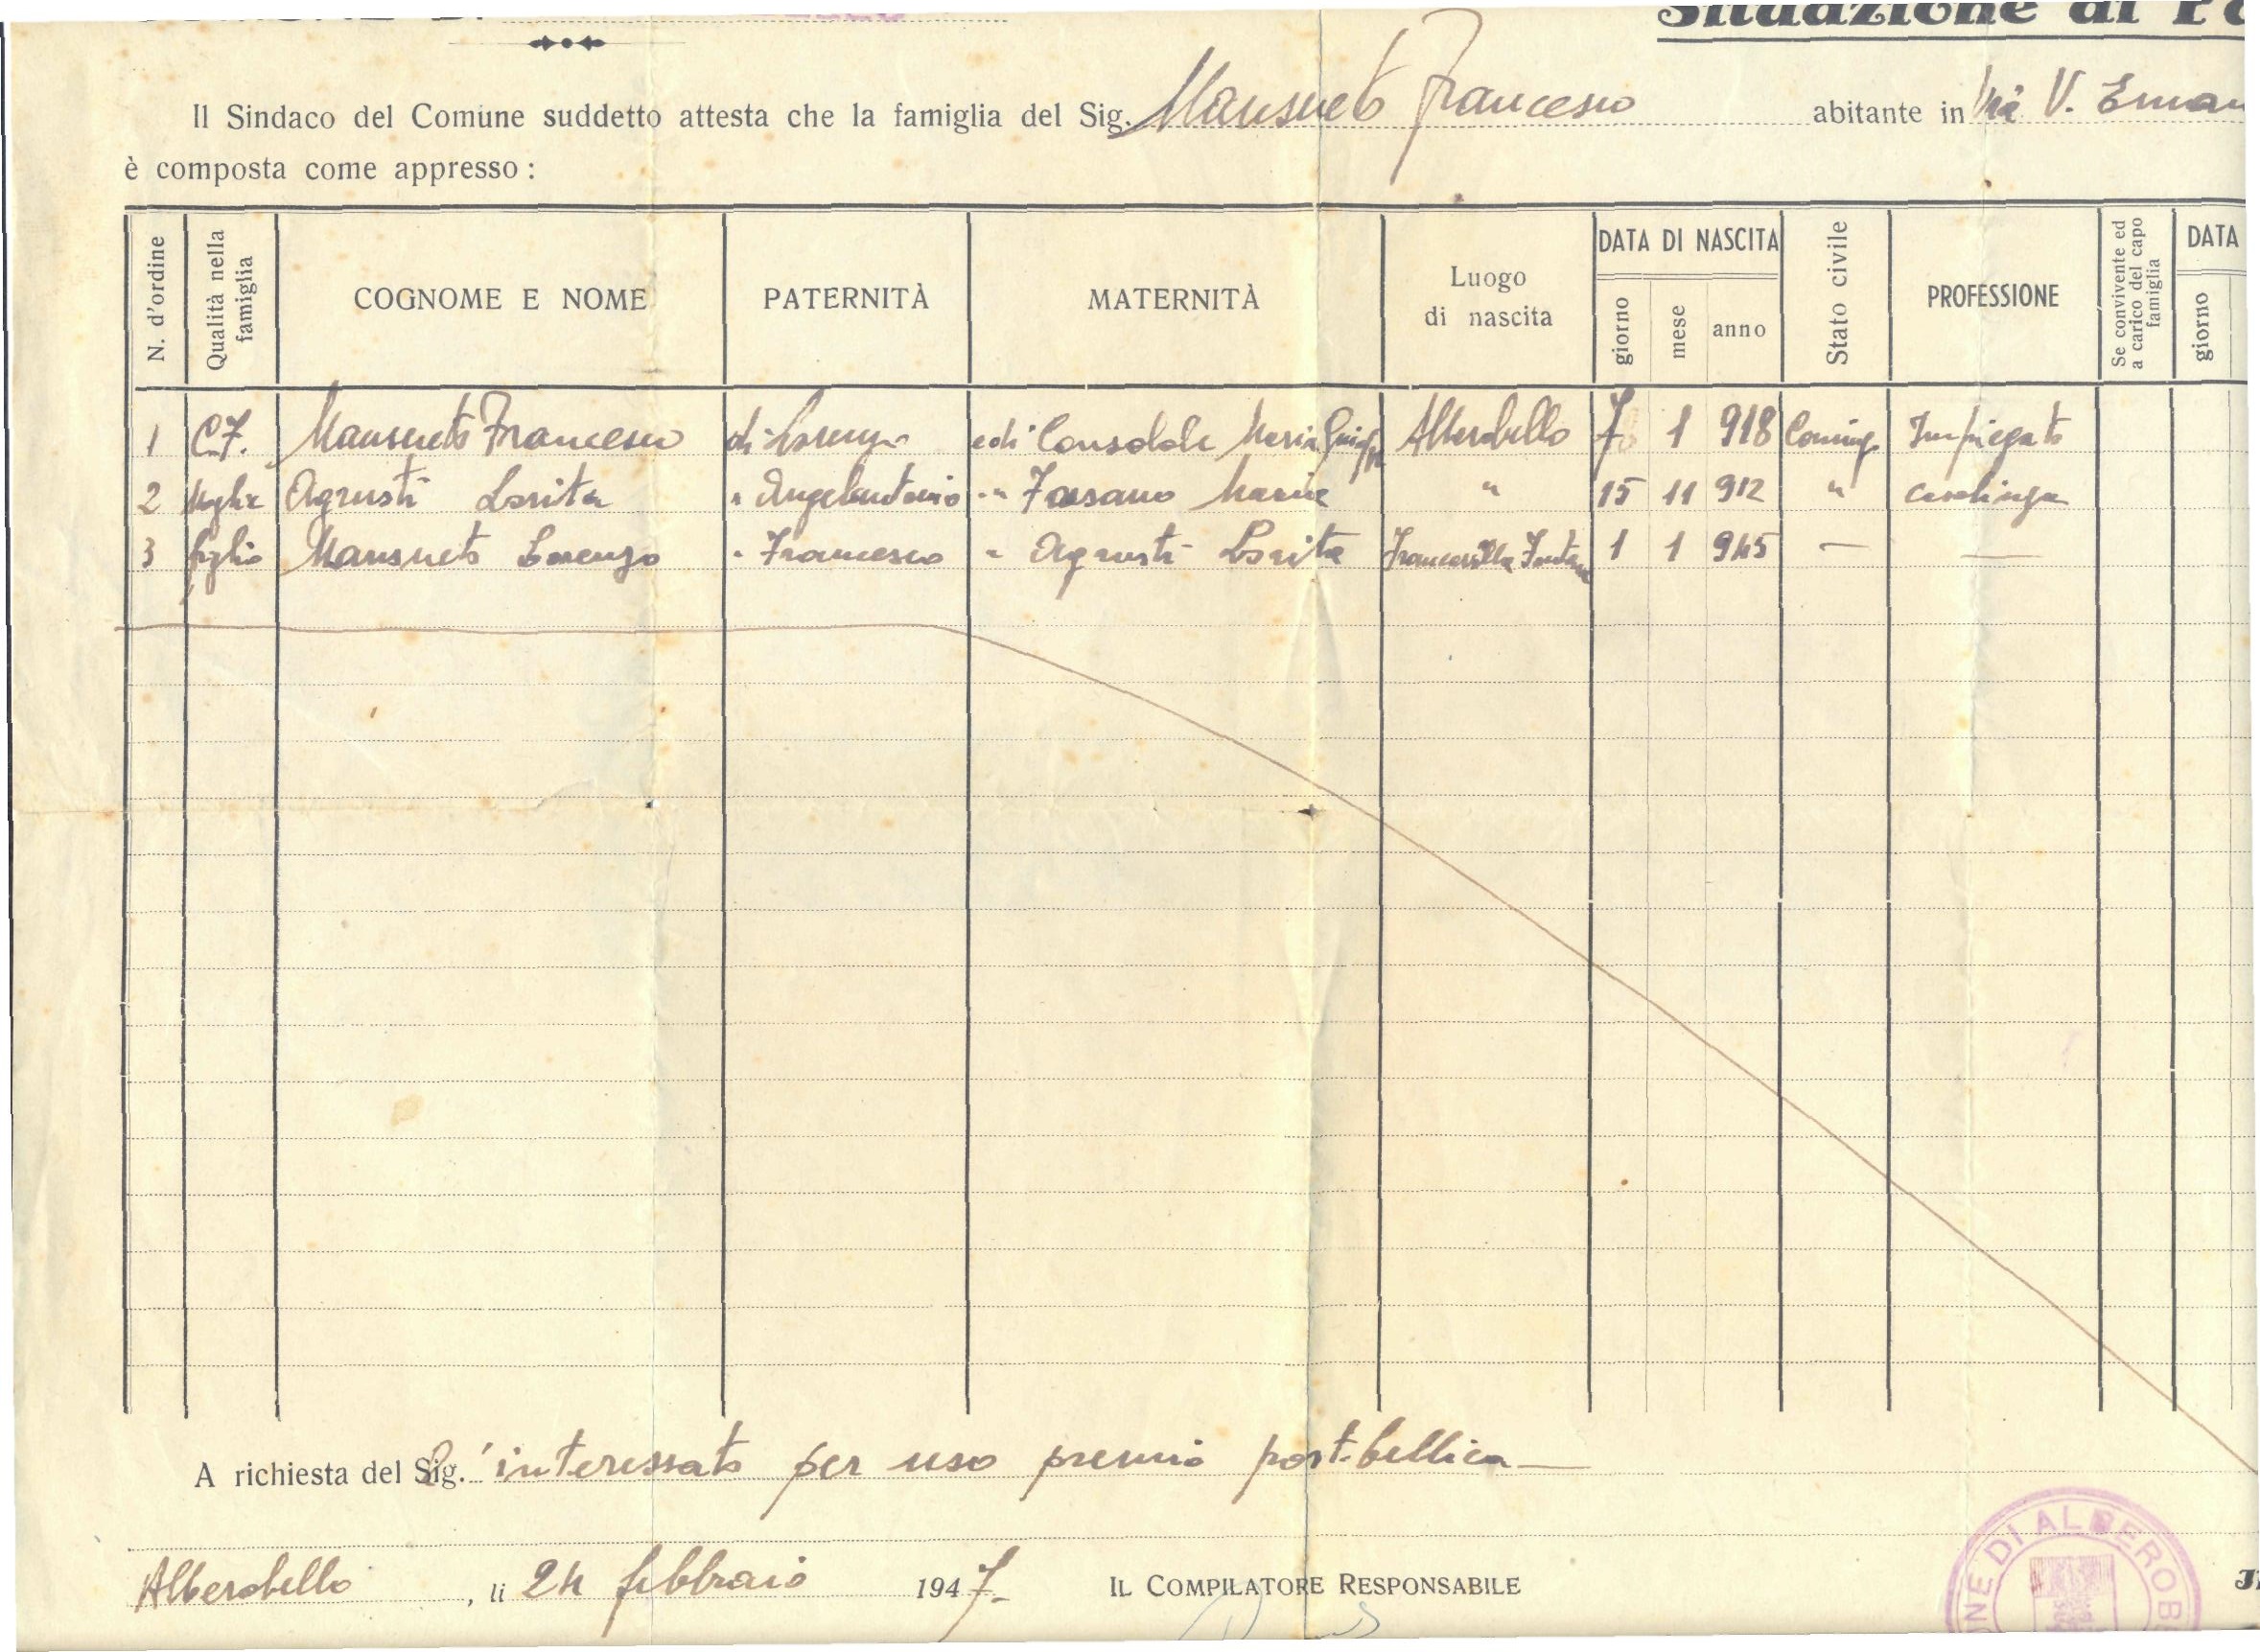 Situazione di
Il Sindaco del Comune suddetto attesta che la famiglia del Sig. Mansueto Francesco abitante in Via V. Eman
è composta come appresso :
N. d'ordine Qualità nella famiglia COGNOME E NOME PATERNITÀ MATERNITÀ Luogo di nascita DATA DI NASCITA giorno mese anno Stato civile PROFESSIONE Se convivente ed a carico del capo famiglia DATA giorno
1 C.F. Mansueto Francesco di Lorenzo e di Consolole Maria Alberobello 7 1 918 Coniug Impiegato
2 Moglie Agrusti Lorita " Angelantonio " " Fasano Maria " 15 11 912 " casalinga
3 figlio Mansueto Lorenzo " Francesco " Agrusti Lorita Francavilla Fontana 1 1 945 — —
A richiesta del Sig. L'interessato per uso premio post-bellica —
Alberobello , li 24 febbraio 1947. IL COMPILATORE RESPONSABILE
NE DI ALBEROB